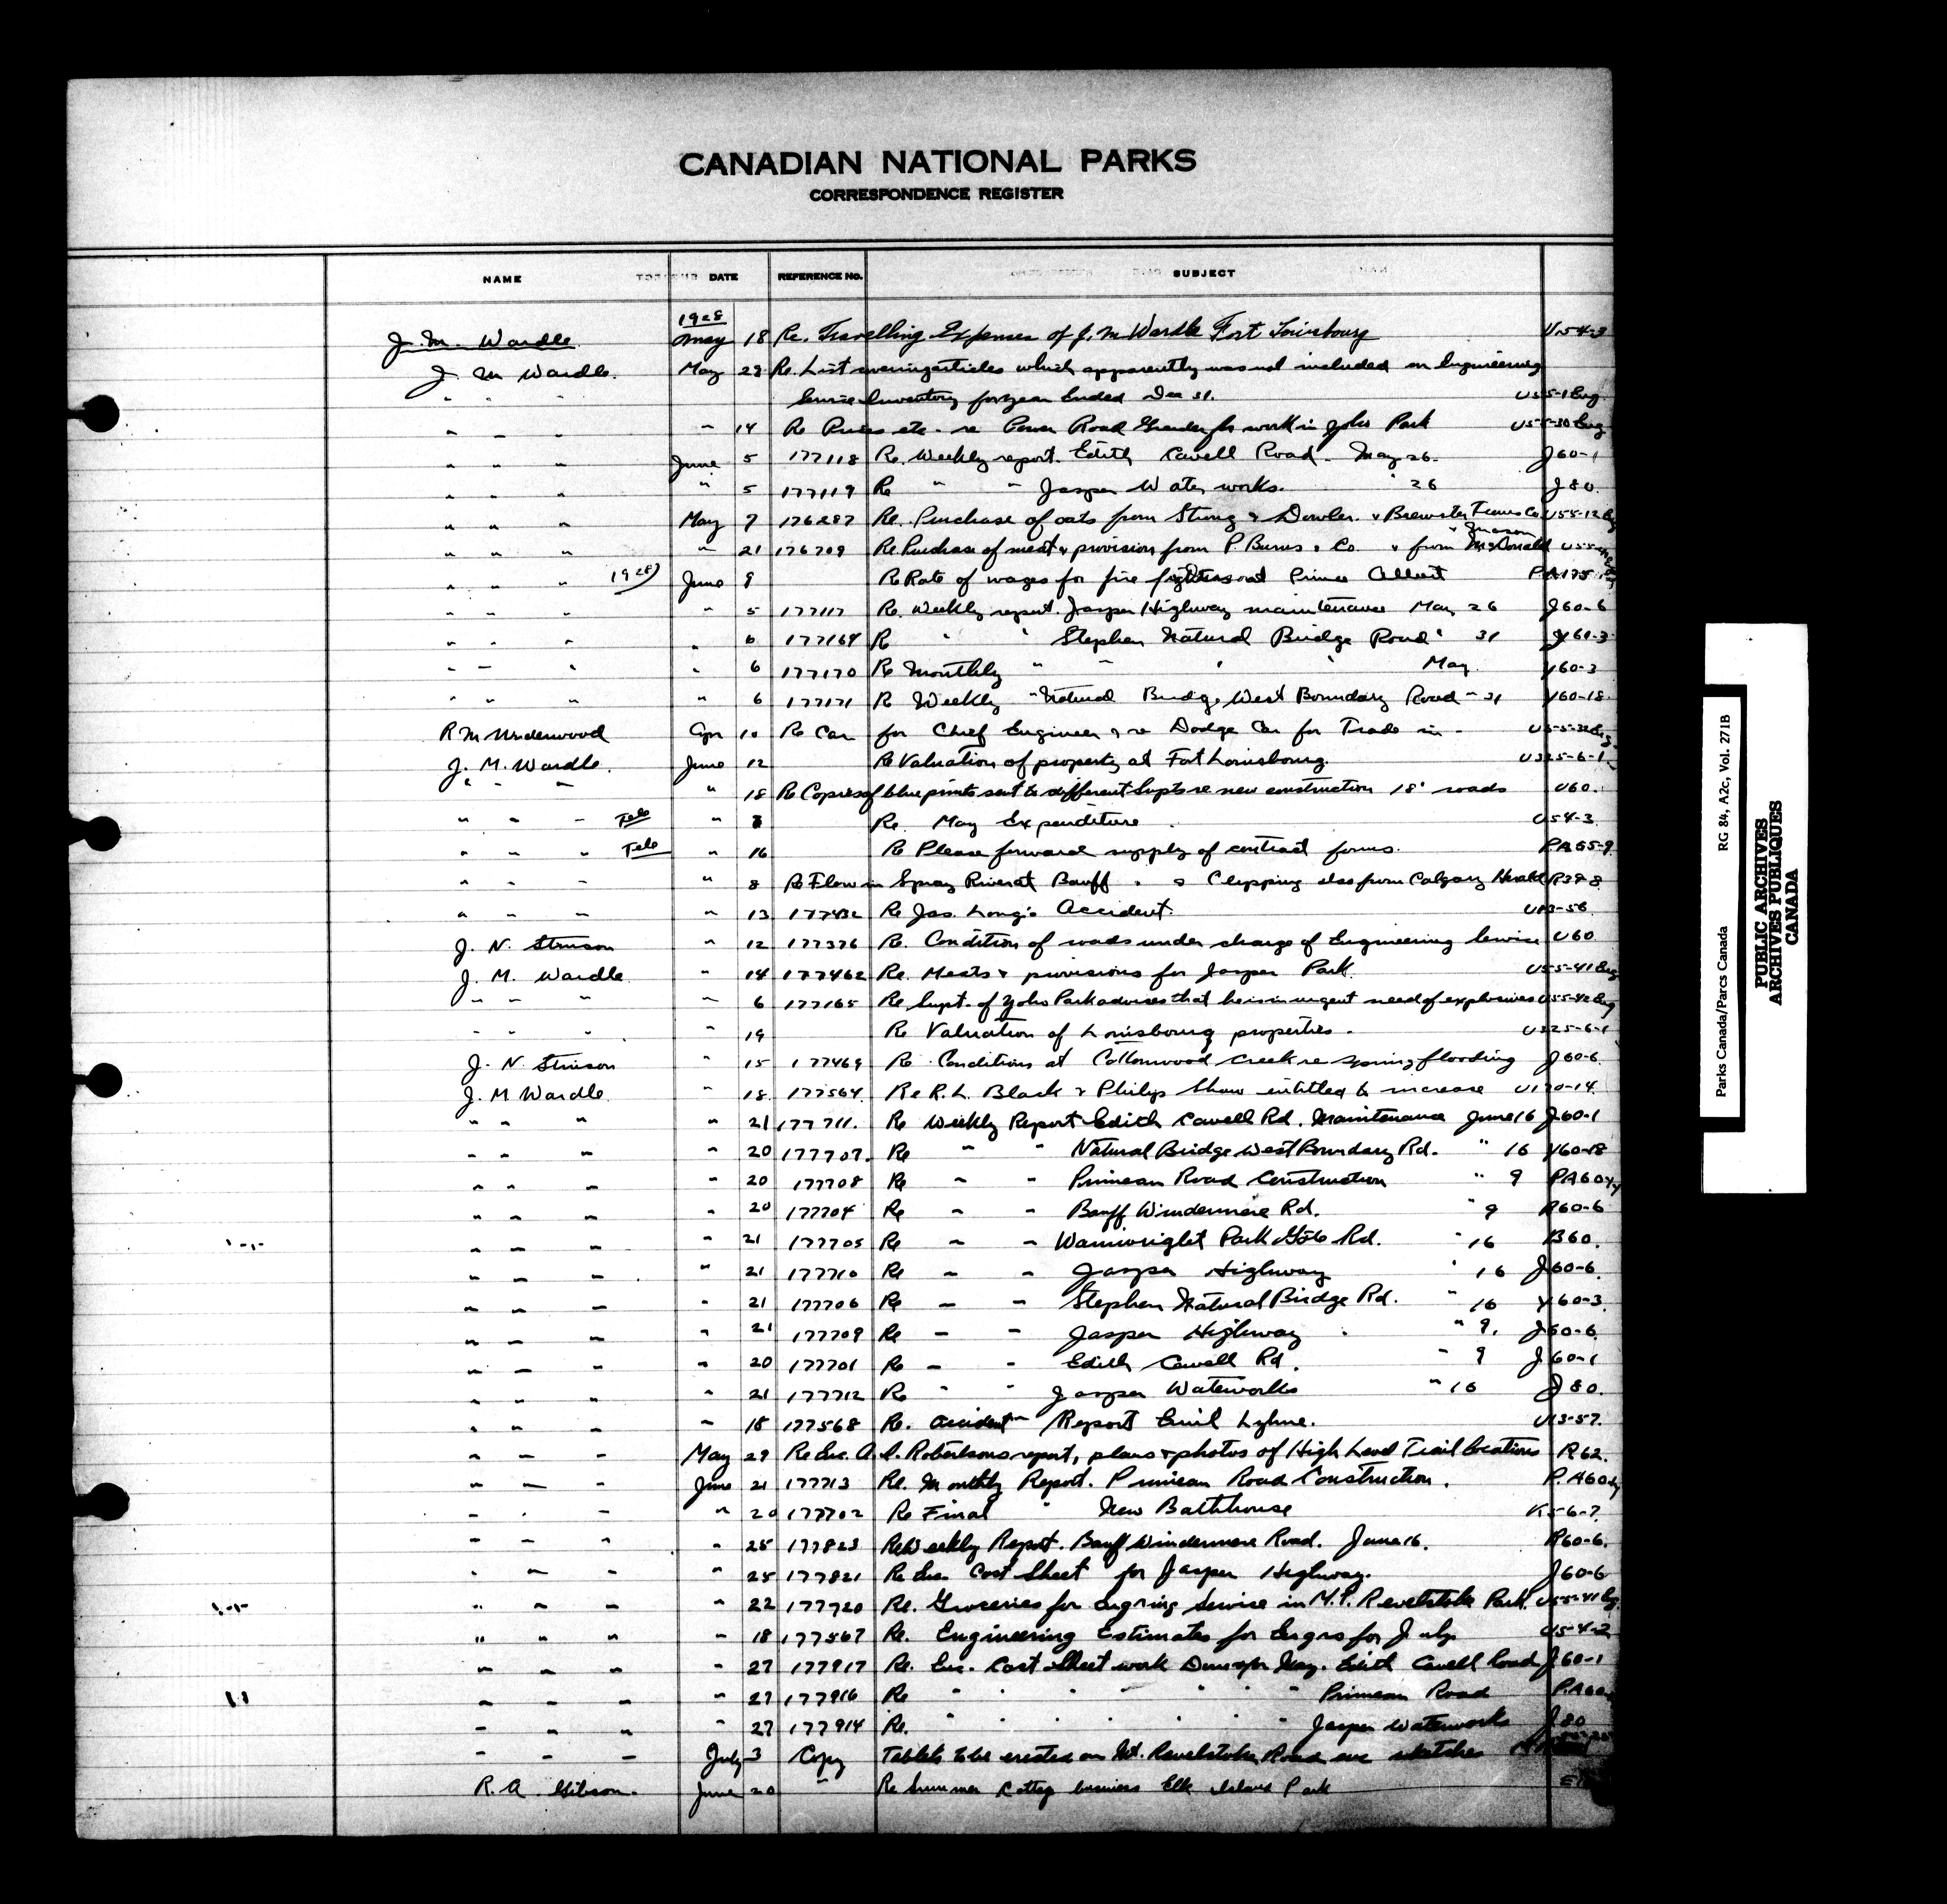 CANADIAN NATIONAL PARKS
CORRESPONDENCE REGISTER
NAME DATE REFERENCE No. SUBJECT
1928
J. M. Wardle May 18 Re. Travelling Expenses of J. M. Wardle Fort Louisbourg U54-3
J. M Wardle. May 29 Re. List articles which apparently was not included in Engineering
" " " Service Inventory for year Ended Dec 31. U55-1 Eng.
" " " " 14 Re Prices etc. re Power Road Grader for work in Yoho Park U55-30 Eng
" " " June 5 177118 Re. Weekly report. Edith Cavell Road. May 26. J60-1
" " " " 5 177119 Re " " Jasper Water works. " 26 J80.
" " " May 7 176287 Re. Purchase of oats from Strong & Dowler. & Brewster Trans Co. U55-12 Eng
" " " " 21 176709 Re Purchase of meat & provision from P. Burns & Co. & from McDonald U55-
" " " 1928) June 9 Re Rate of wages for fire fighters at Prince Albert PA175-1
" " " " 5 177117 Re. Weekly report. Jasper Highway maintenance May 26 J60-6
" " " " 6 177169 Re " " Stephen Natural Bridge Road " 31 Y60-3
" " " " 6 177170 Re Monthly " " " " May Y60-3
" " " " 6 177171 Re Weekly " Natural Bridge, West Boundary Road " 31 Y60-18.
R M Underwood Apr 10 Re Car for Chief Engineer & re Dodge Car for Trade in - U55-32 Eng.
J. M. Wardle. June 12 Re Valuation of property at Fort Louisbourg. U325-6-1
" " " " 18 Re Copies of blue prints sent to different Supts re new construction 18' roads U60.
" " " Tele " 7 Re. May Expenditure U54-3.
" " " Tele " 16 Re Please forward supply of contract forms. PA55-9
" " " " 8 Re Flow in Spray River at Banff. & Clipping also from Calgary Herald R39-8
" " " " 13 177432 Re Jas. Long's Accident. U13-56
J. N. Stinson " 12 177376 Re. Condition of roads under charge of Engineering Service U60
J. M. Wardle " 14 177462 Re. Meats & provisions for Jasper Park U55-41 Eng
" " " " 6 177165 Re Supt. of Yoho Park advises that he is in urgent need of explosives U55-42 Eng
" " " " 19 Re Valuation of Louisbourg properties. U325-6-1
J. N. Stinson " 15 177469 Re. Conditions at Cottonwood Creek re spring flooding J60-6
J. M Wardle. " 18. 177564 Re R. L. Black & Philip Shaw entitled to increase U170-14.
" " " " 21 177711. Re Weekly Report Edith Cavell Rd. Maintenance June 16 J60-1
" " " " 20 177707. Re " " Natural Bridge West Boundary Rd. " 16 Y60-18
" " " " 20 177708 Re " " Primeau Road Construction " 9 PA60
" " " " 20 177704 Re " " Banff Windermere Rd. " 9 R60-6
" " " " 21 177705 Re " " Wainwright Park Gate Rd. " 16 B60.
" " " " 21 177710 Re " " Jasper Highway " 16 J60-6.
" " " " 21 177706 Re " " Stephen Natural Bridge Rd. " 16 Y60-3.
" " " " 21 177709 Re " " Jasper Highway " 9. J60-6.
" " " " 20 177701 Re " " Edith Cavell Rd. " 9 J60-1
" " " " 21 177712 Re " " Jasper Waterworks " 16 J80.
" " " " 18 177568 Re. accident Report Emil U13-57.
" " " May 29 Re Enc. A. Robertsons report, plans & photos of High Level Trail locations R62.
" " " June 21 177713 Re. Monthly Report. Primeau Road Construction. P.A60
" " " " 20 177702 Re Final " New Bathhouse K56-7.
" " " " 25 177823 Re Weekly Report. Banff Windermere Road. June 16. R60-6.
" " " " 25 177821 Re Enc. Cost Sheet for Jasper Highway. J60-6
" " " " 22 177720 Re. Groceries for Engring Service in Mt. Revelstoke Park. U55-41 Eng.
" " " " 18 177567 Re. Engineering Estimates for Engrs for July. U54-2
" " " " 27 177917 Re. Enc. Cost Sheet work Done for May. Edith Cavell Road J60-1
" " " " 27 177916 Re " " " " " " Primeau Road P.A60
" " " " 27 177914 Re. " " " " " " Jasper Waterworks J80
" " " July 3 Copy Tablets to be erected on Mt. Revelstoke Road enc sketches
R. A. Gibson. June 20 " Re Summer Cottage business Elk Island Park
Parks Canada/Parcs Canada RG 84, A2c, Vol. 271B
PUBLIC ARCHIVES
ARCHIVES PUBLIQUES
CANADA